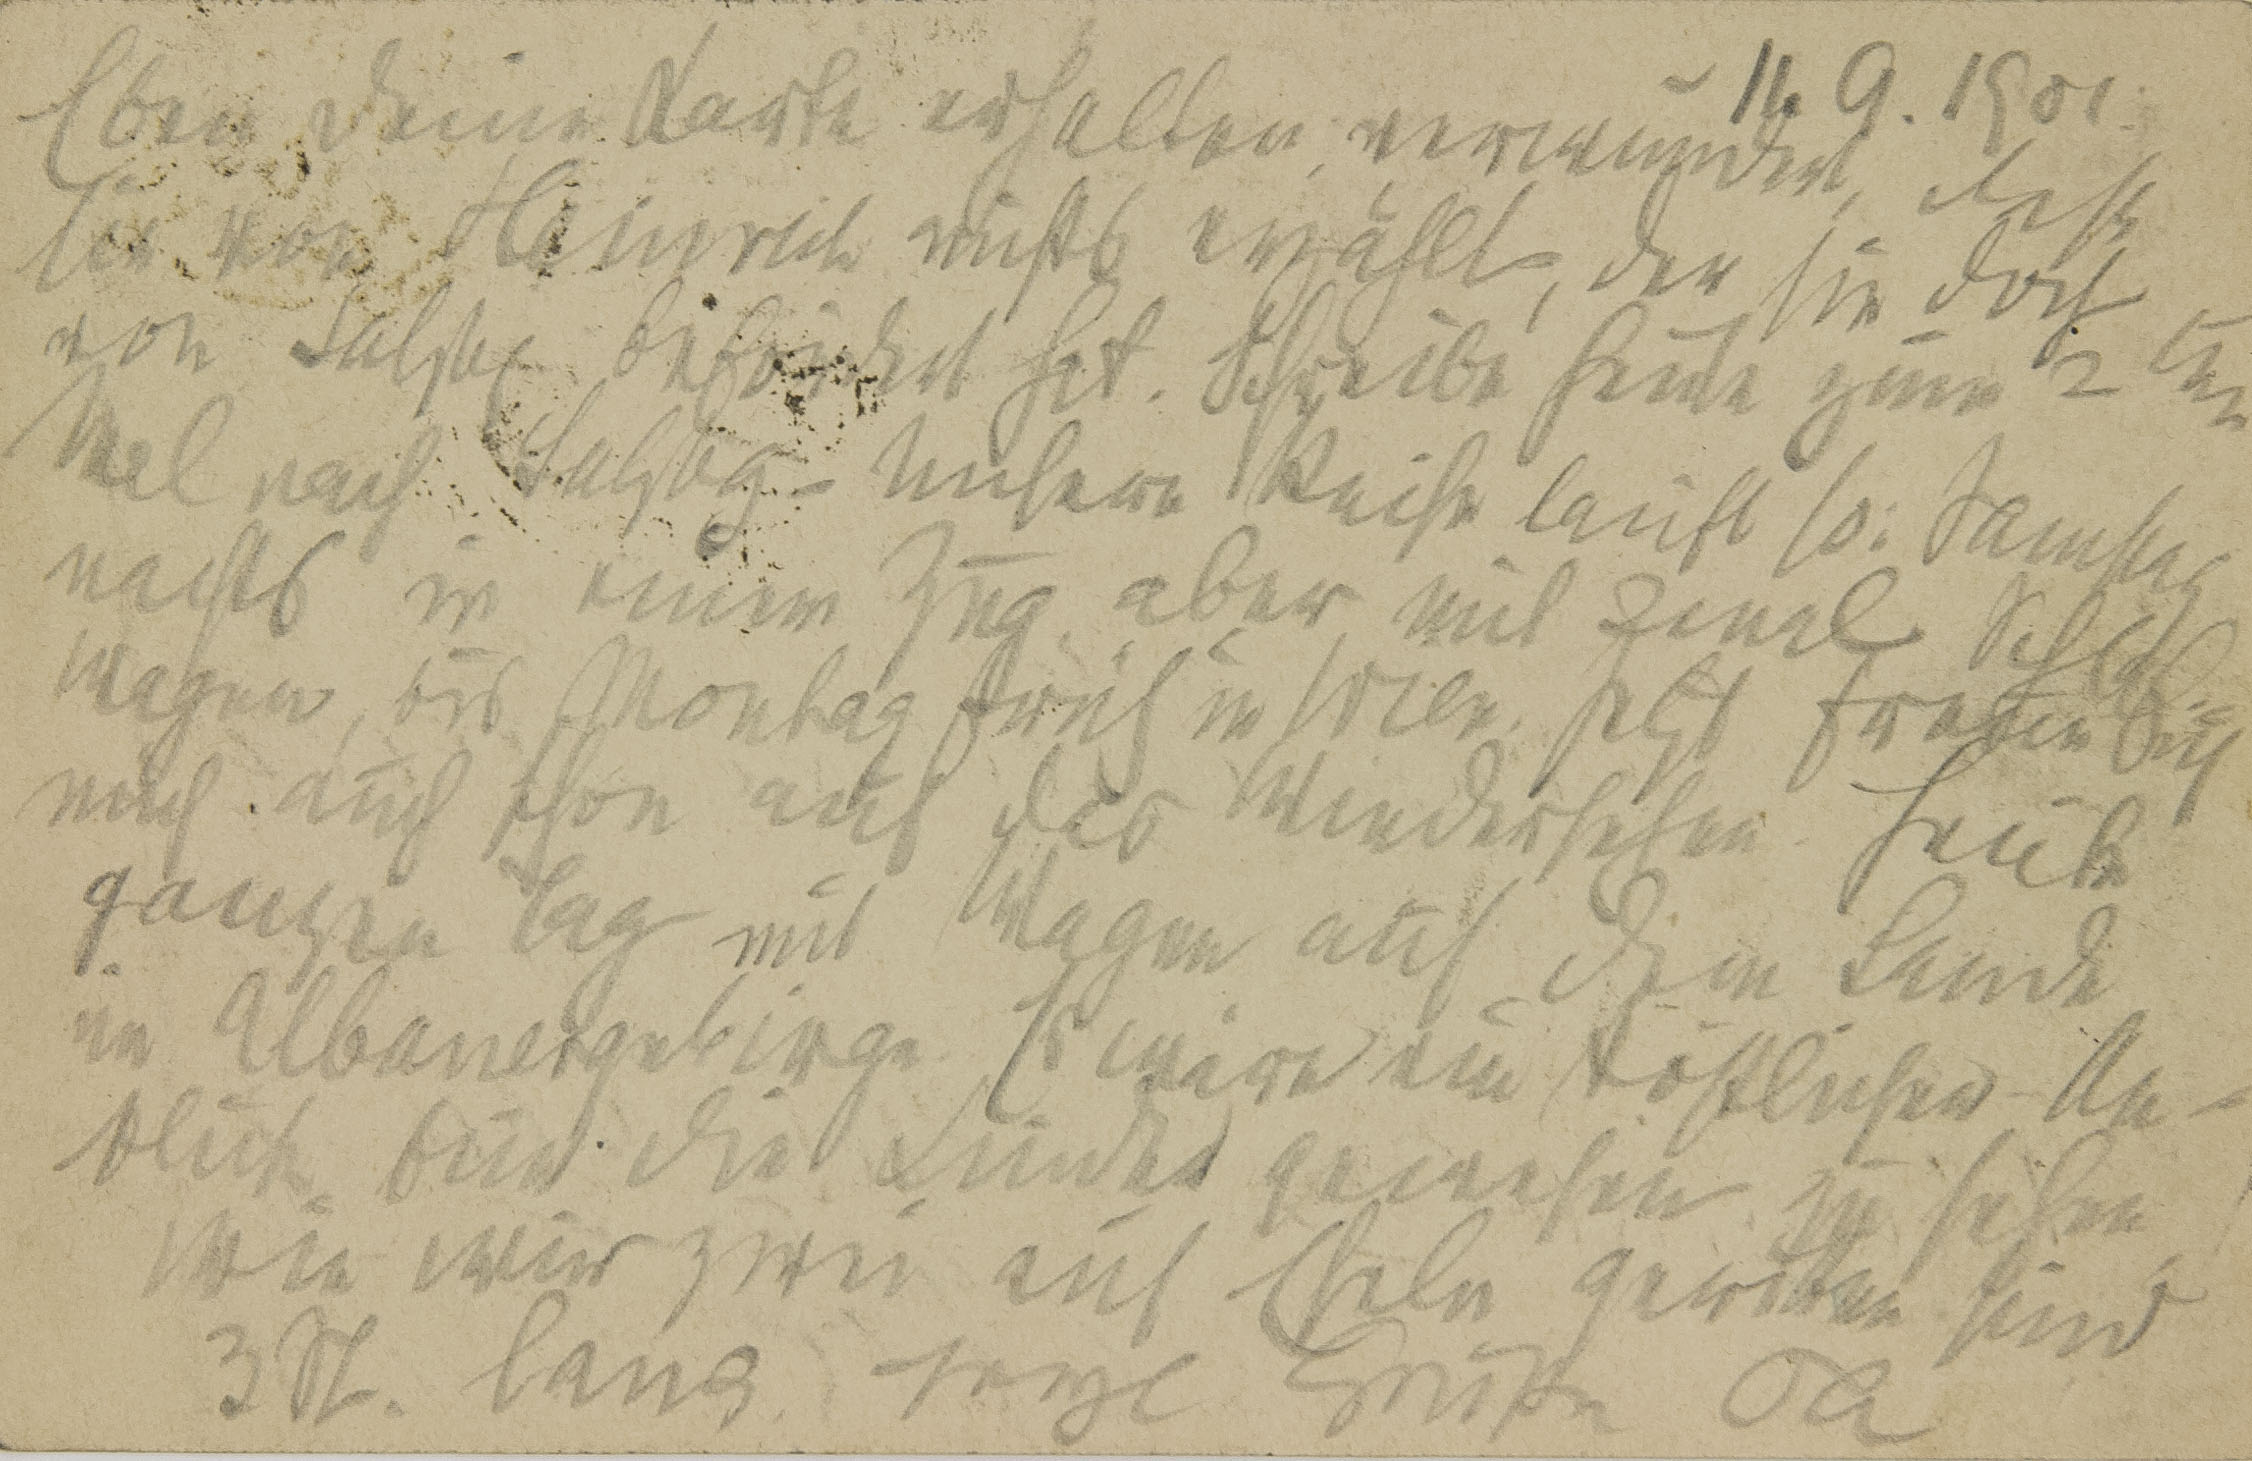 11. 9. 1901.
Eben deine Karte erhalten, verwundert, daß
sie von Heinrich nichts erzählt, der sie doch
von Salzbg besucht hat. Schreibe heute zum 2 ten
Mal nach Salzbg – Unsere Reise läuft so: Samstag
nachts in einem Zug, aber mit Schlaf
wagen, bis Montag früh in Wien. Jetzt freue ich
mich auch schon auf das Wiedersehen. Heute
ganzen Tag mit Wagen auf dem Lande
im Albanergebirge. Es wäre ein köstlicher An-
blick für die Kinder gewesen zu sehen
wie wir zwei auf Eseln geritten sind
3 St. lang. Grüße